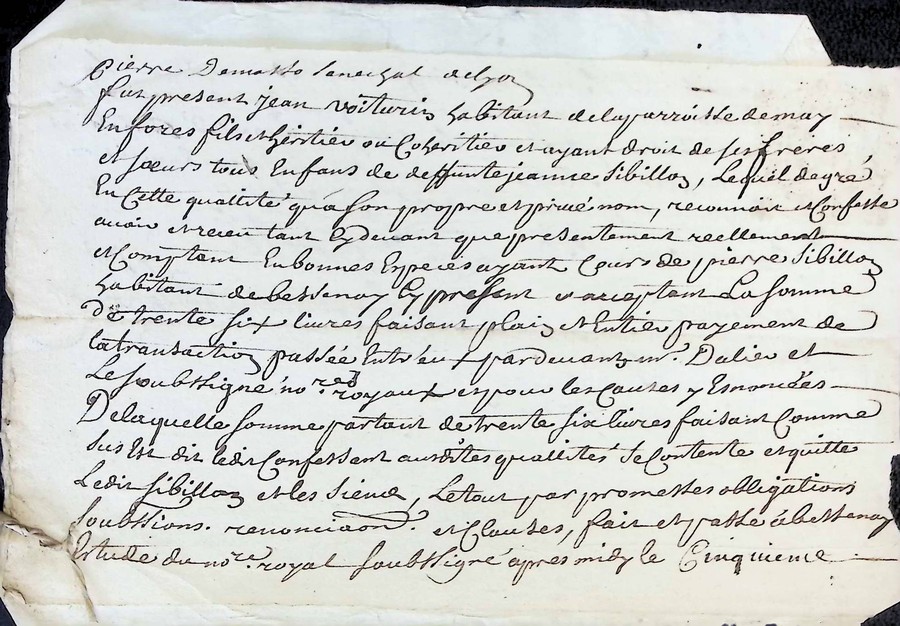 Pierre Demasso Senechal de lyon
fut present jean voiturin habitant de la parroisse de may
En fores fils et héritier ou Cohéritier et ayant droit de ses freres
et sœurs tous Enfans de deffunte jeanne Sibillon, Lequel de gré
En cette quallité qu'a son propre et privé nom, reconnoit et Confesse
avoir et receu tant cy devant que presentement reellement
et Comptant En bonnes Especes ayant Cours de pierre Sibillon
habitant de bessenay Cy present et acceptant La Somme
De trente six livres faisant plain et Entier payement de
la transaction passée Entr'eux pardevant m.e Dalier et
Le soubssigné no.res royaux et pour les Causes y Enoncées
De laquelle somme partant de trente six livres faisant Comme
sus Est dit ledit Confessent ausdites quallités se Contente et quitte
Ledit Sibillon et les siens, Le tout par promesses obligations
soubssions. renonciaon. et Clauses, fait et passé à bessenay
Estude du no.re royal soubssigné apres midy le Cinquieme